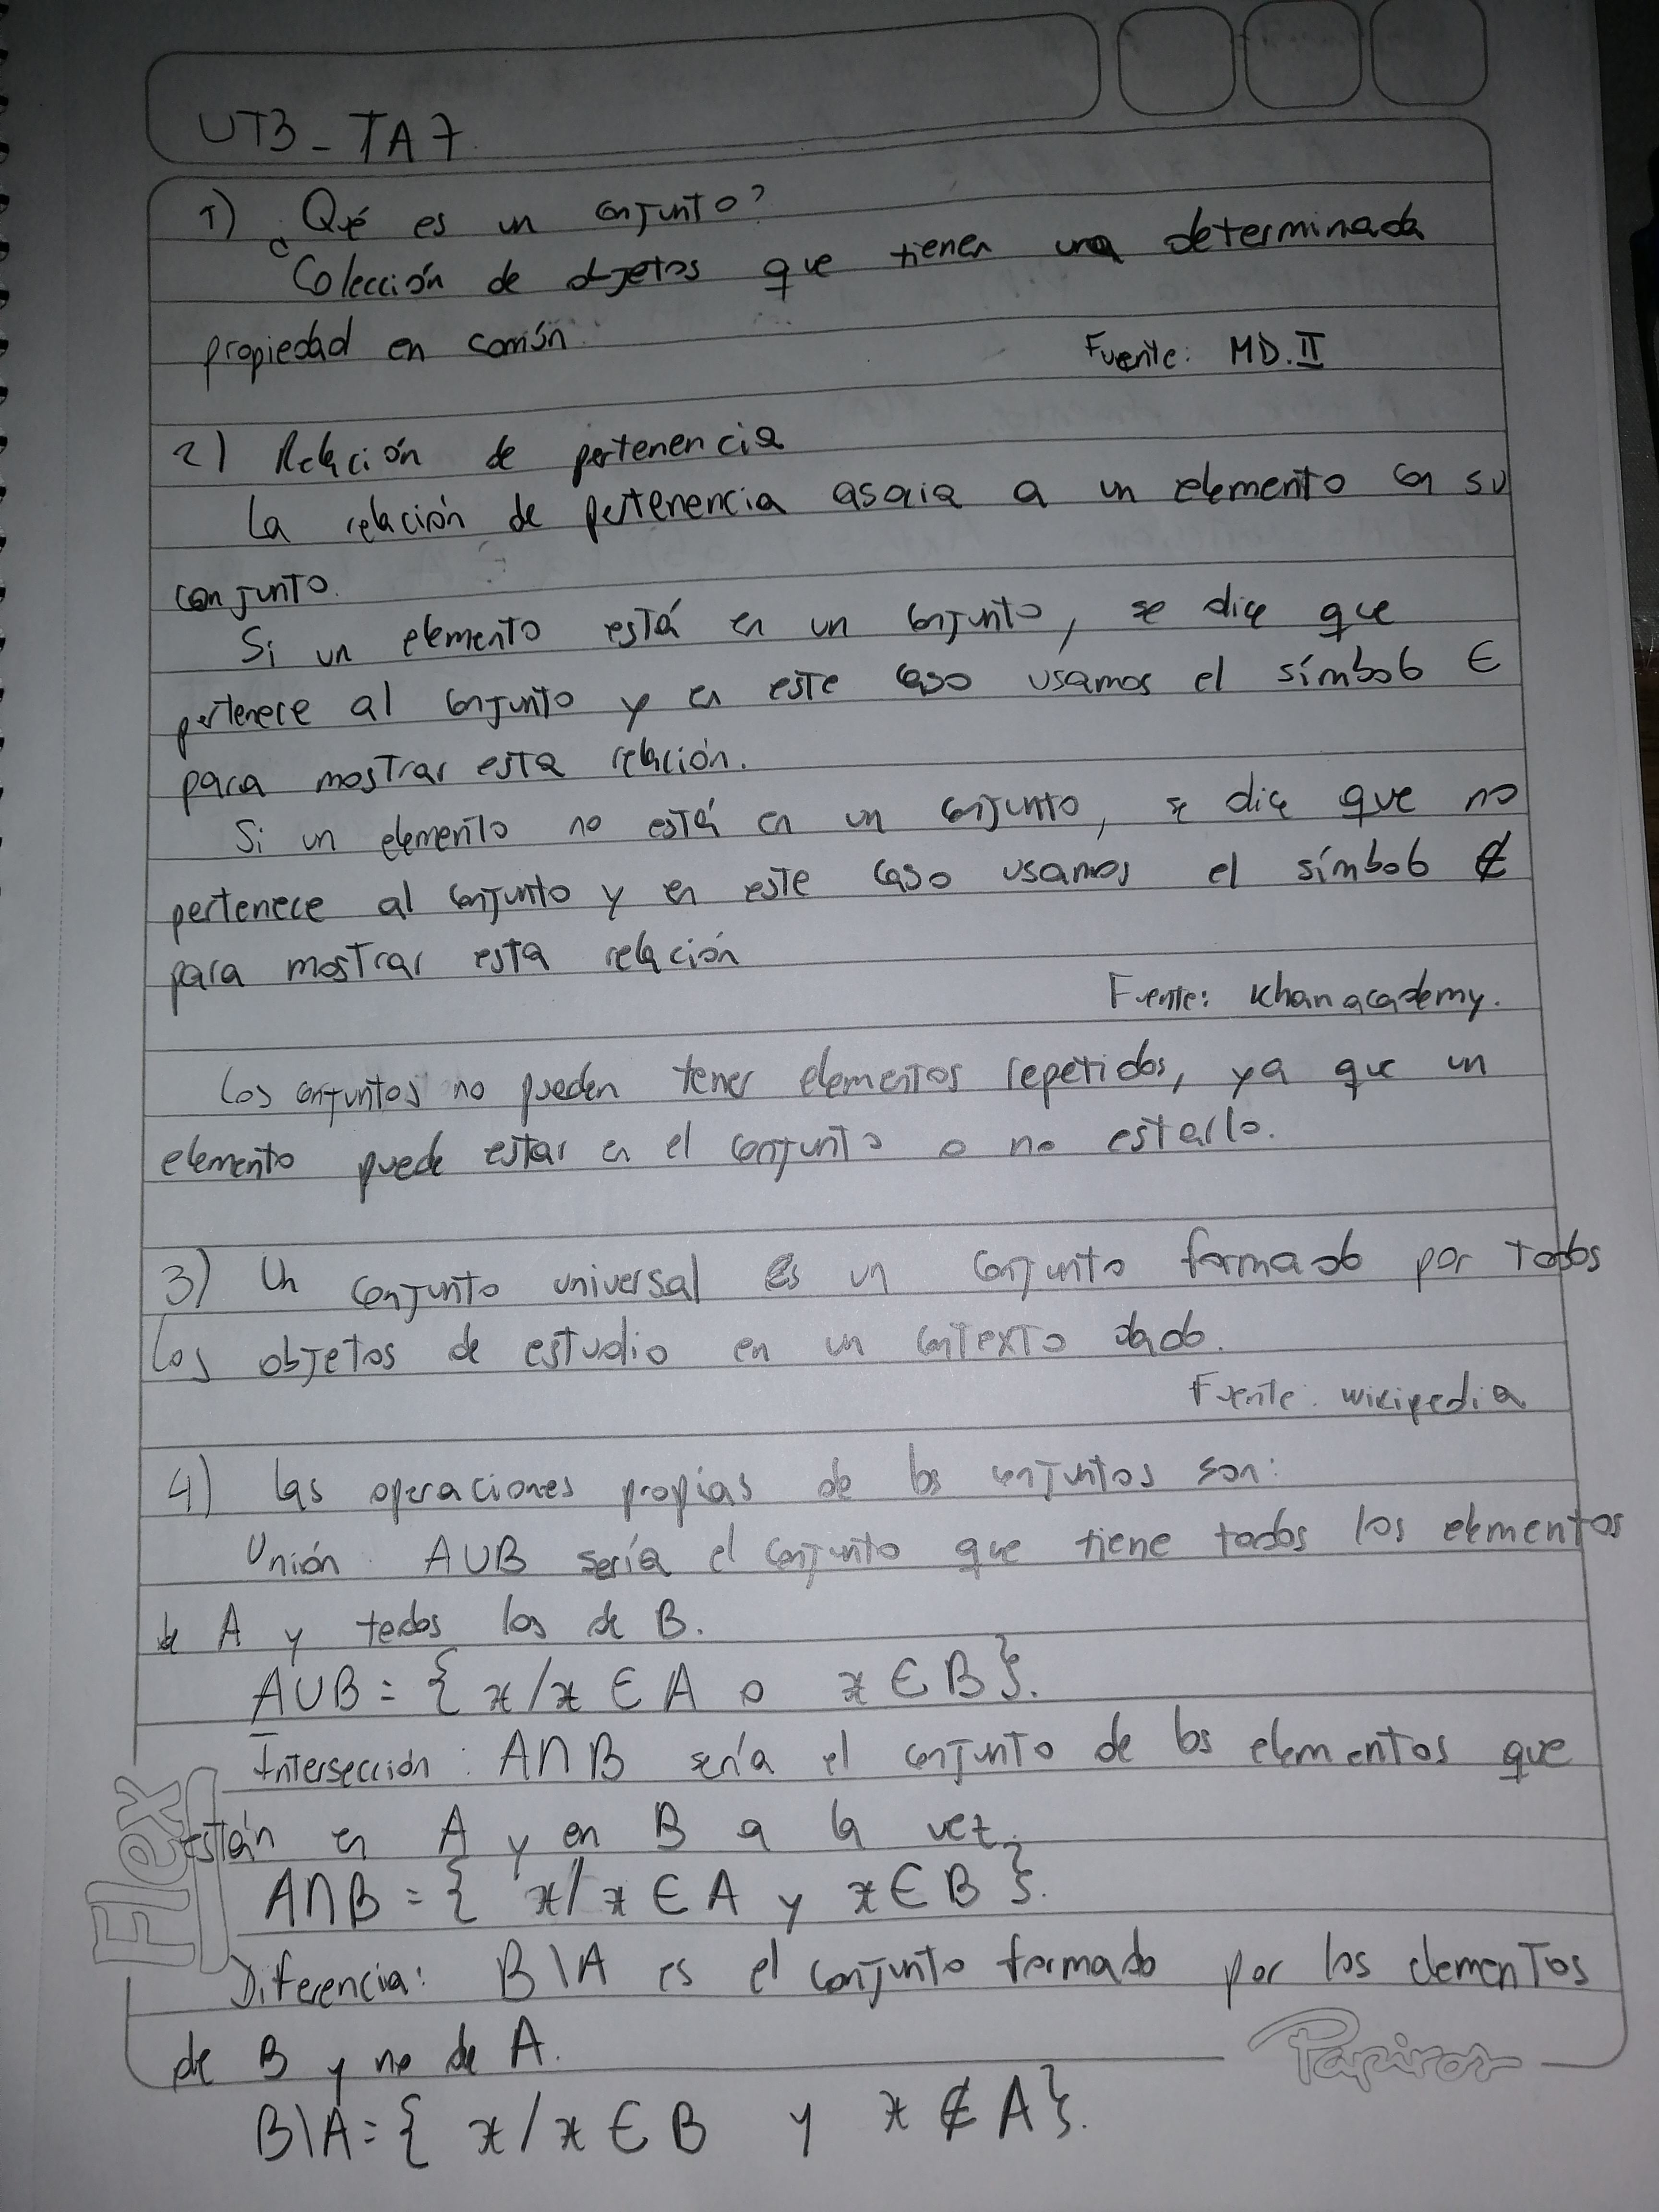 UT3 - TA7
1) ¿Qué es un conjunto?
Colección de objetos que tienen una determinada
propiedad en común.
Fuente: MD.II
2) Relación de pertenencia
La relación de pertenencia asocia a un elemento con su
conjunto.
Si un elemento está en un conjunto, se dice que
pertenece al conjunto y en este caso usamos el símbolo ∈
para mostrar esta relación.
Si un elemento no está en un conjunto, se dice que no
pertenece al conjunto y en este caso usamos el símbolo ∉
para mostrar esta relación
Fuente: Khanacademy.
Los conjuntos no pueden tener elementos repetidos, ya que un
elemento puede estar en el conjunto o no estarlo.
3) Un conjunto universal es un conjunto formado por todos
los objetos de estudio en un contexto dado.
Fuente: wikipedia
4) Las operaciones propias de los conjuntos son:
Unión: A∪B sería el conjunto que tiene todos los elementos
de A y todos los de B.
A∪B = { x/x ∈ A o x ∈ B }.
Intersección: A∩B sería el conjunto de los elementos que
están en A y en B a la vez.
A∩B = { x/x ∈ A y x ∈ B }.
Diferencia: B\A es el conjunto formado por los elementos
de B y no de A.
B\A = { x/x ∈ B y x ∉ A }.
Flex
Papiros